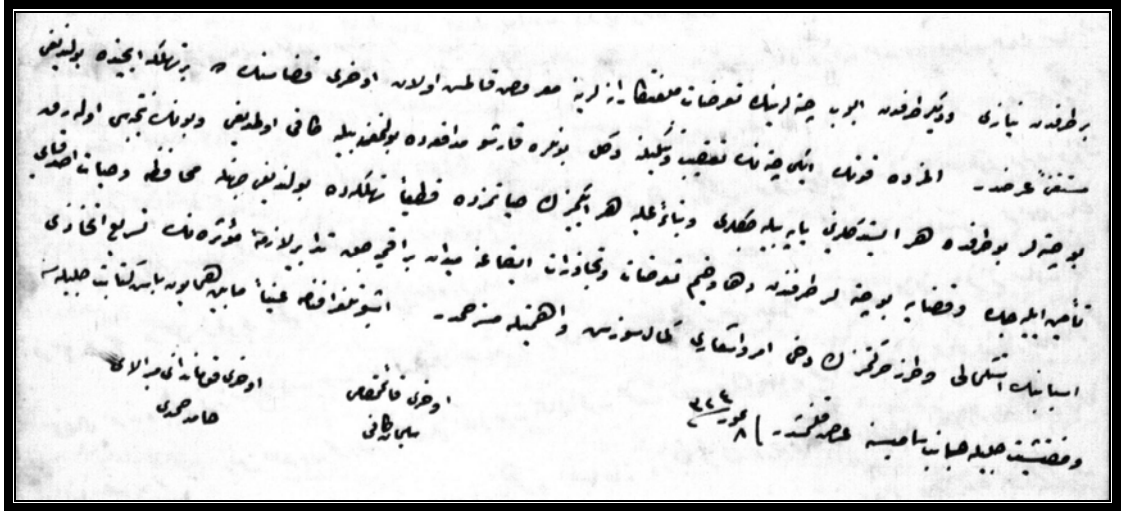 بر طرفدن نیازی و دیگر طرفدن ایوب چته‌لرینك تعرضات ملعنتكارانه‌لرینه معروض قالمش اولان اوخری قضاسنك بر تهلكه ایچنده بولندیغی
مستغنئ عرضدر المزده قوتك ایكی چته‌نك تعقیب و تنكیلنه دكل بونلره قارشو مدافعه‌ده بولنمغه بیله كافی اولمدیغی و بونك نتیجه‌سی اوله‌رق
بو چته‌لر بو طرفده هر ایستدكلرینی یاپه‌بیله‌جكلری و بناءً علیه هر ایكیمزك حیاتمزده قطعیاً تهلكه‌ده بولندیغی جهتله محافظه و حیات
تأمین ایلیه‌جك و قضایه بو چته‌لر طرفندن دها وخیم تعرضات و تجاوزات ایقاعنه میدان براقمیه‌جق تدابیر لازمهٔ مؤثره‌نك سریع اتخاذی
اسبابنك استكمالی و طرز حركتمزك دخی امر و اشعاری كمال سوزش و اهمیتله مسترحمدر اشبو تلغرافنامه عیناً مابین همایون باش كتابت جلیله‌سنه
و مفتشیت جلیله جانب سامیسنه عرض قلنمشدر ٨ تموز ٣٢٤
اوخری قائمقامی
سلیمان كافی
اوخری قوماندانی میرالای
حامد حمدی